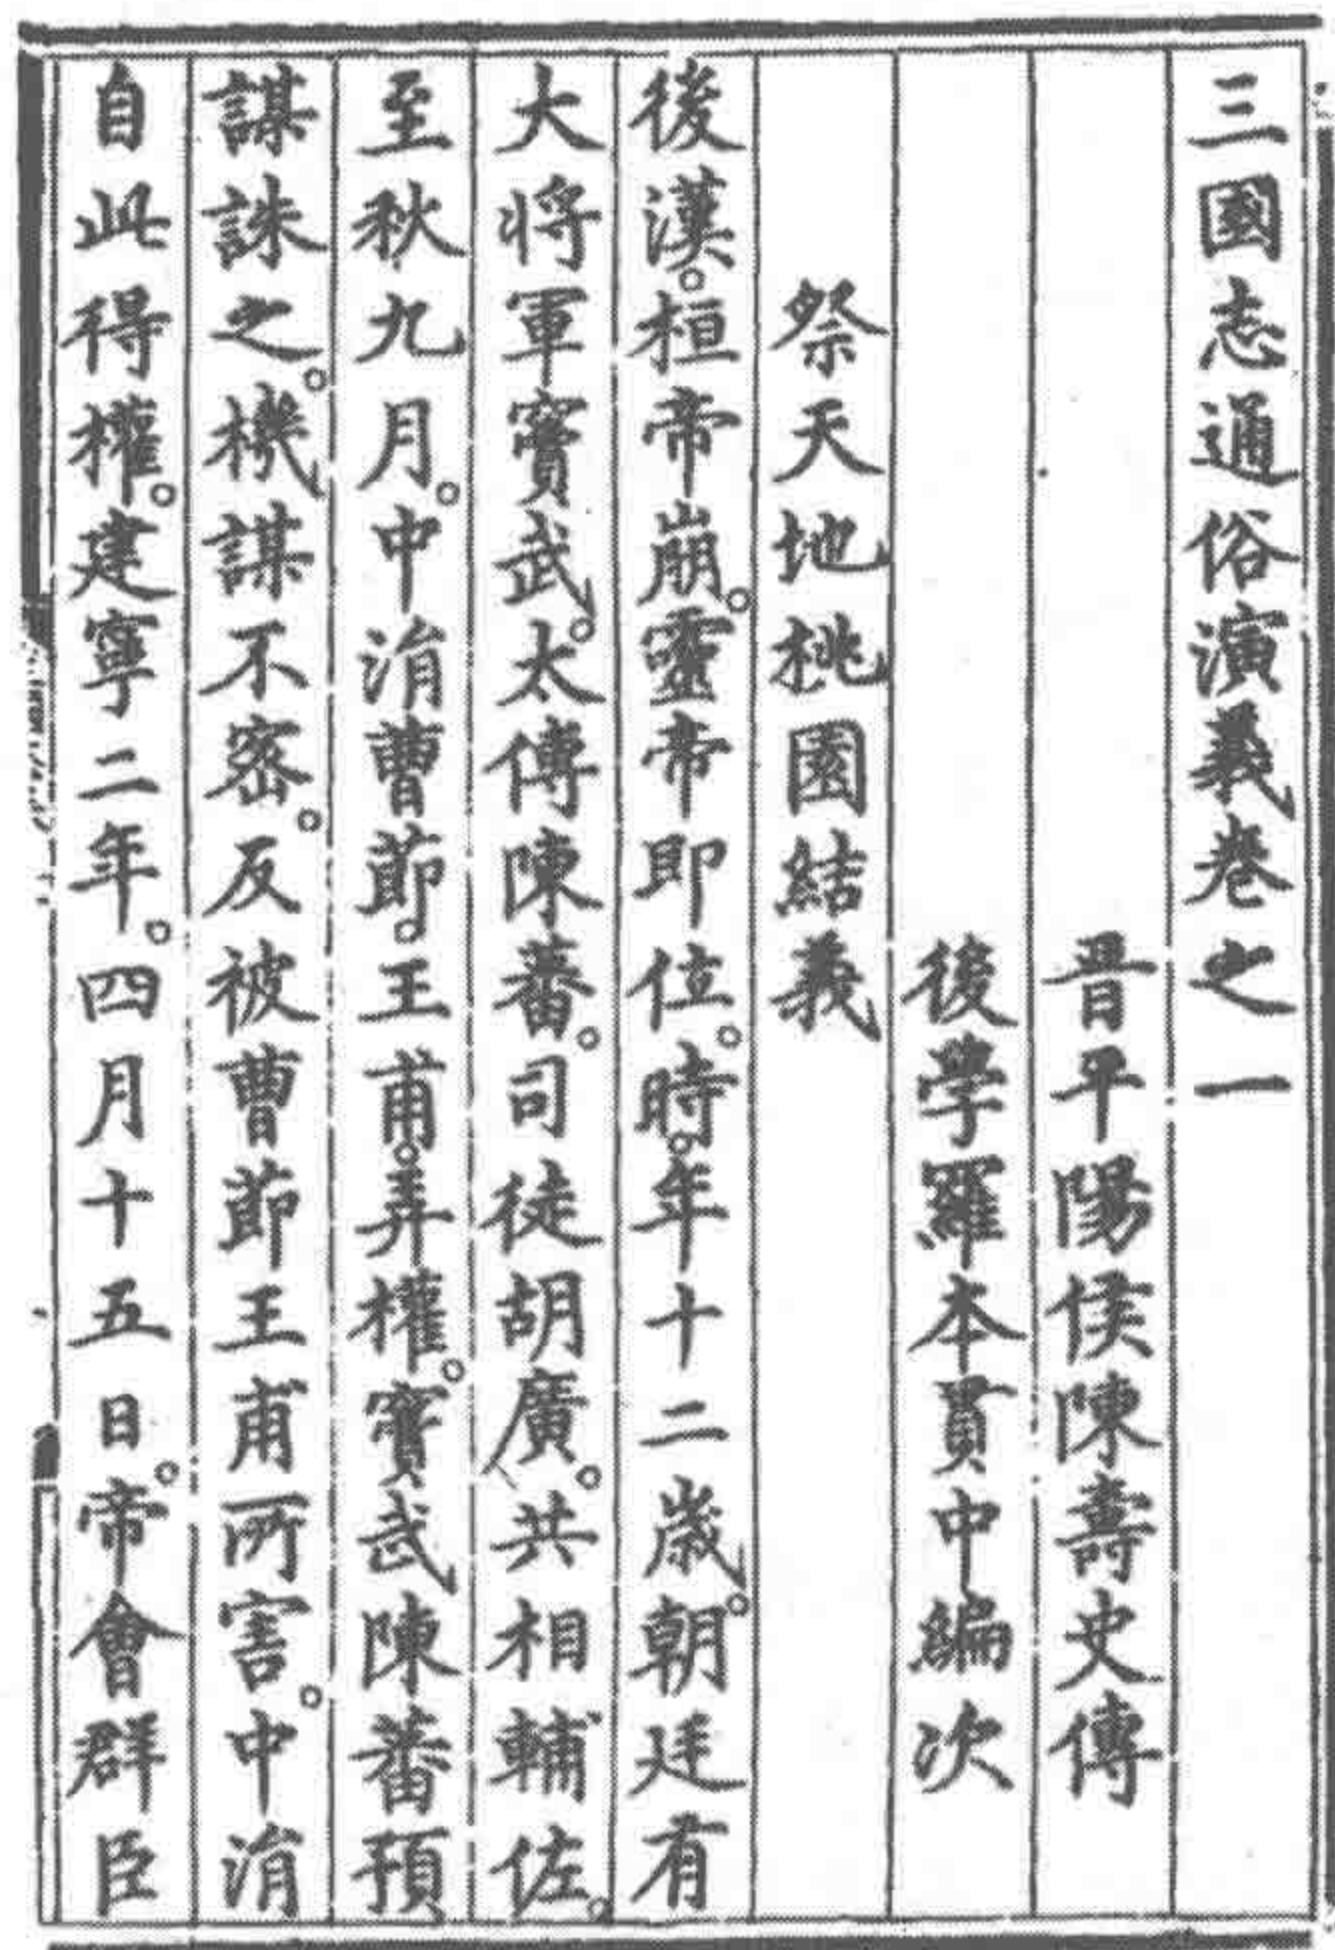 三國志通俗演義卷之一
晉平陽侯陳壽史傳
後學羅本貫中編次
祭天地桃園結義
後漢。桓帝崩。靈帝即位。時。年十二歲。朝廷有
大將軍竇武。太傅陳蕃。司徒胡廣。共相輔佐。
至秋九月。中涓曹節。王甫。弄權。竇武陳蕃預
謀誅之。機謀不密。反被曹節王甫所害。中涓
自此得權。建寧二年。四月十五日。帝會群臣